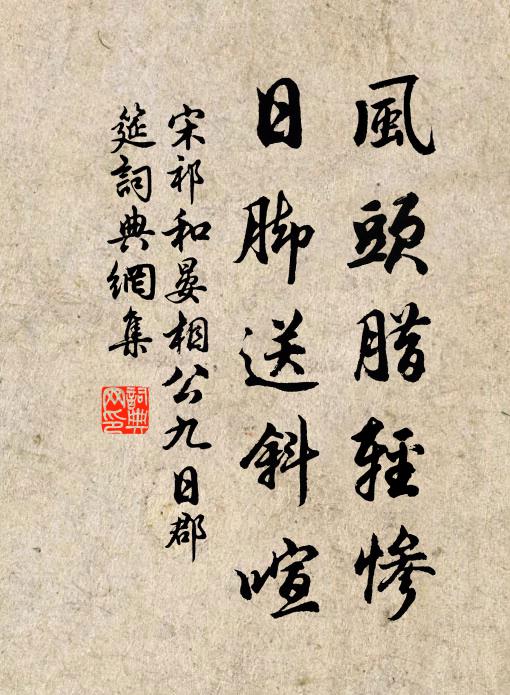 風頭腊輕慘
日脚送斜喧
宋祁和晏相公九日郡
筵詞典網集
詞典网印